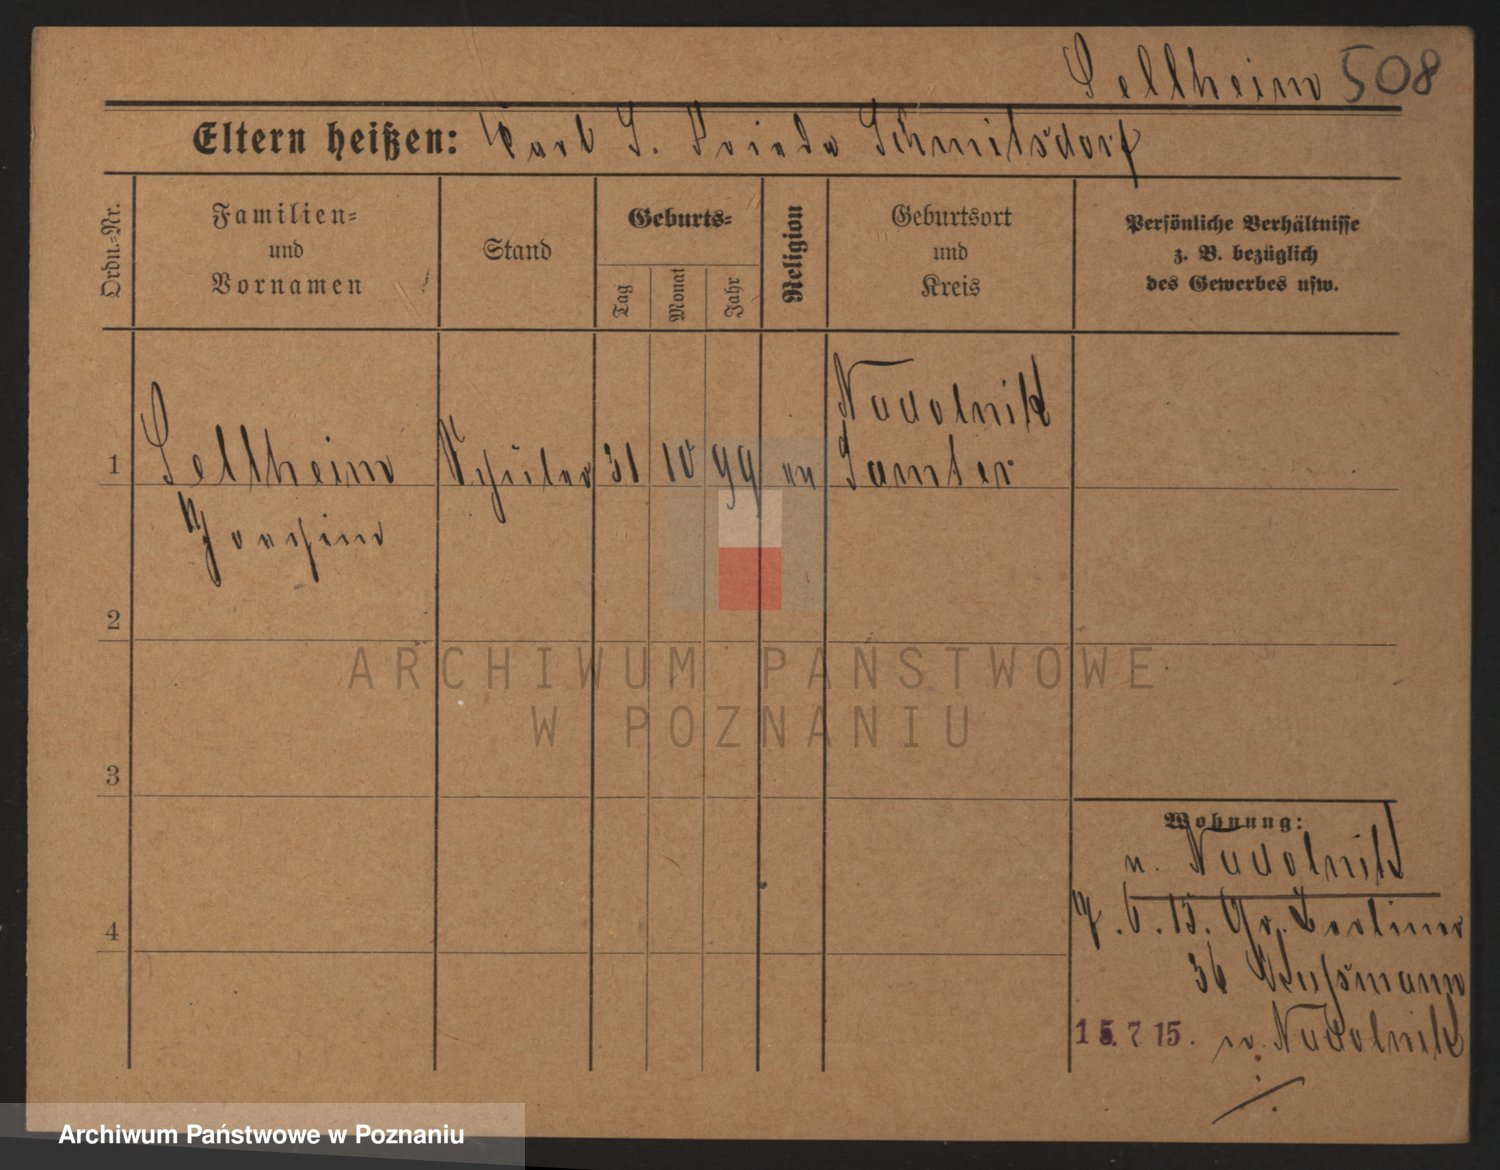 Sellheim 508
Eltern heißen: Karl S. Frieda Schmilsdorf
Ordn.-Nr.
Familien-
und
Vornamen
Stand
Geburts-
Tag
Monat
Jahr
Religion
Geburtsort
und
Kreis
Persönliche Verhältnisse
z. B. bezüglich
des Gewerbes usw.
1 Sellheim Schüler 31 10 99 ev Nudolnik
Samter
Joachim
2
3
4
Wohnung:
n. Nudolnik
7. 6. 15. Gr. Berliner
36
15. 7 15. n. Nudolnik
ARCHIWUM PAŃSTWOWE
W POZNANIU
Archiwum Państwowe w Poznaniu